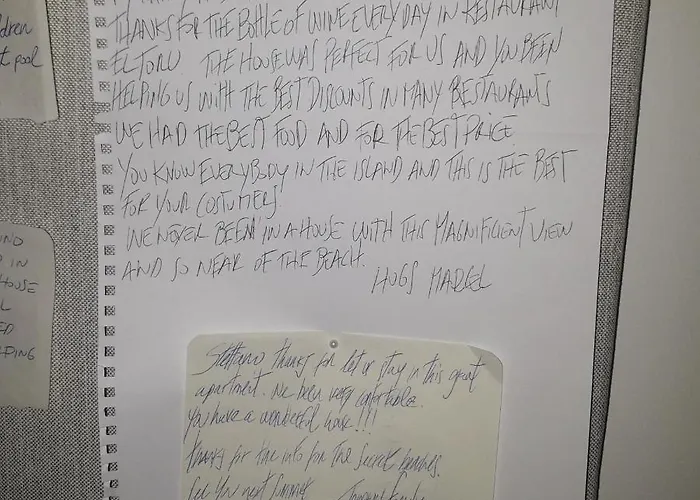 THANKS FOR THE BOTTLE OF WINE EVERY DAY IN RESTAURANT
EL TORU. THE HOUSE WAS PERFECT FOR US AND YOU BEEN
HELPING US WITH THE BEST DISCOUNTS IN MANY RESTAURANTS
WE HAD THE BEST FOOD AND FOR THE BEST PRICE.
YOU KNOW EVERYBODY IN THE ISLAND AND THIS IS THE BEST
FOR YOUR COSTUMERS.
WE NEVER BEEN IN A HOUSE WITH THIS MAGNIFICIENT VIEW
AND SO NEAR OF THE BEACH.
HUGS
Steffano thanks for let us stay in this great
apartment. We been very confortable.
You have a wonderful house!!!
thanks for the info for the secret beaches.
See you next summer
dren
t pool
UND
IN
HOUSE
ED
PING